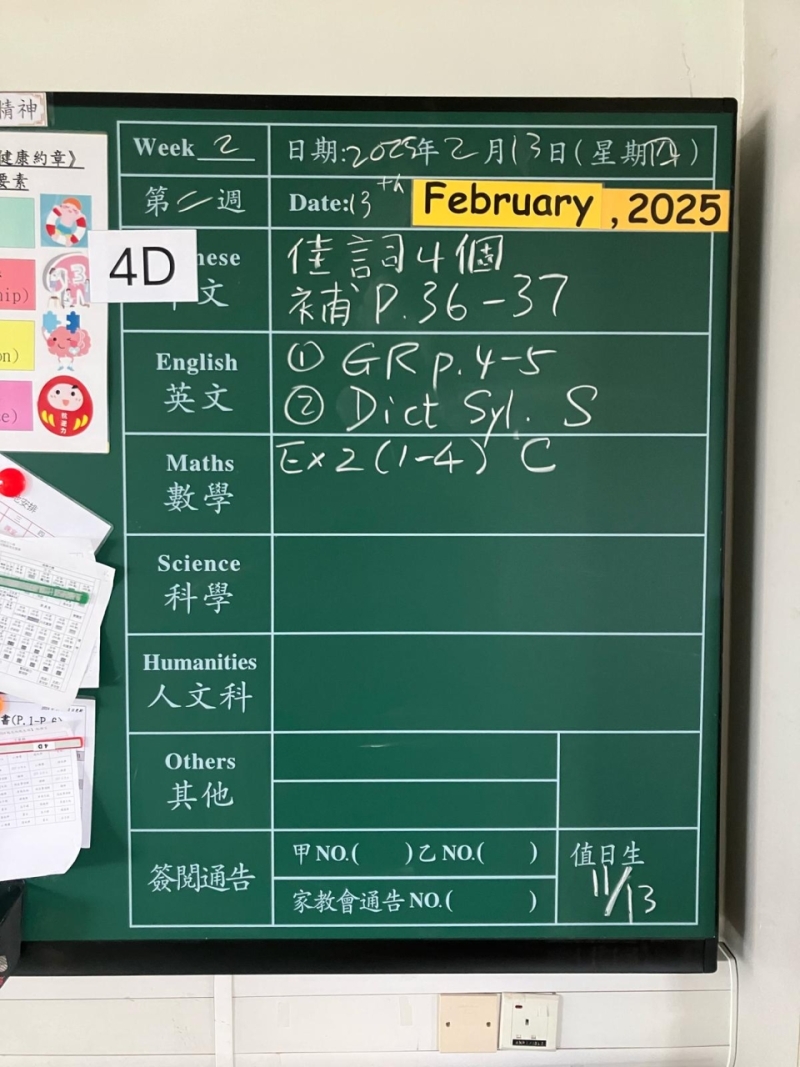 精神
健康約章》
要素
4D
Week 2
日期:2025年2月13日(星期四)
第二週
Date:13th February, 2025
nese
文
佳詞4個
補P.36-37
English
英文
① GR p.4-5
② Dict Syl. S
Maths
數學
Ex2(1-4) C
Science
科學
Humanities
人文科
Others
其他
簽閱通告
甲NO.( )乙NO.( )
家教會通告NO.( )
值日生
11/13
hip)
on)
e)
書(P.1-P.6)